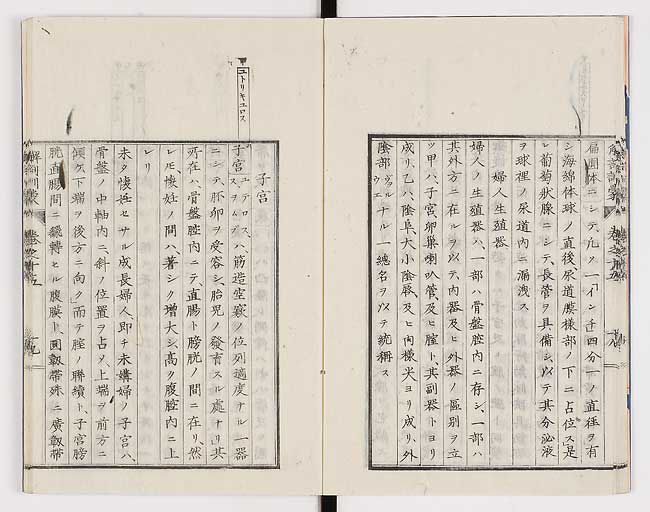 扁圓体ニシテ、凢ソ一「インチ」四分一ノ直徑ヲ有
シ海綿体球ノ直後、尿道膜樣部ノ下ニ占位ス、是
レ葡萄狀腺ニシテ、長管ヲ具備シ、以テ其分泌液
ヲ球裡ノ尿道内ニ漏洩ス
婦人ノ生殖器
婦人ノ生殖器ハ、一部ハ骨盤腔内ニ存シ、一部ハ
其外方ニ在ルヲ以テ、内器及ヒ外器ノ區別ヲ立
ツ甲ハ、子宮、卵巢、喇叭管、及ヒ腟ト、其副器トヨリ
成リ、乙ハ、陰阜、大小陰唇、及ヒ内樣尖ヨリ成リ、外
陰部ヴルウエナル一總名ヲ以テ統稱ス
子宮
ユトリキユロス
子宮ユテロス、ハ、筋造空竅ノ位列適度ナル一器
ニシテ、胚卵ヲ受容シ、胎児ノ發育スル處ナリ其
所在ハ、骨盤腔内ニテ、直膓ト膀胱ノ間ニ在リ、然
レ𪜈、懷妊ノ間ハ、著シク增大シ、高ク腹腔内ニ上
レリ
未タ懷妊セサル成長婦人、即チ未媾婦ノ子宮ハ、
骨盤ノ中軸内ニ、斜ノ位置ヲ占メ、上端ヲ前方ニ
傾ケ、下端ヲ後方ニ向ク、而テ腟ノ聯續ト、子宮膀
胱直膓間ニ飜轉セル腹膜ト、圓靱帶殊ニ廣靱帶
解剖訓蒙 卷之十五 十九